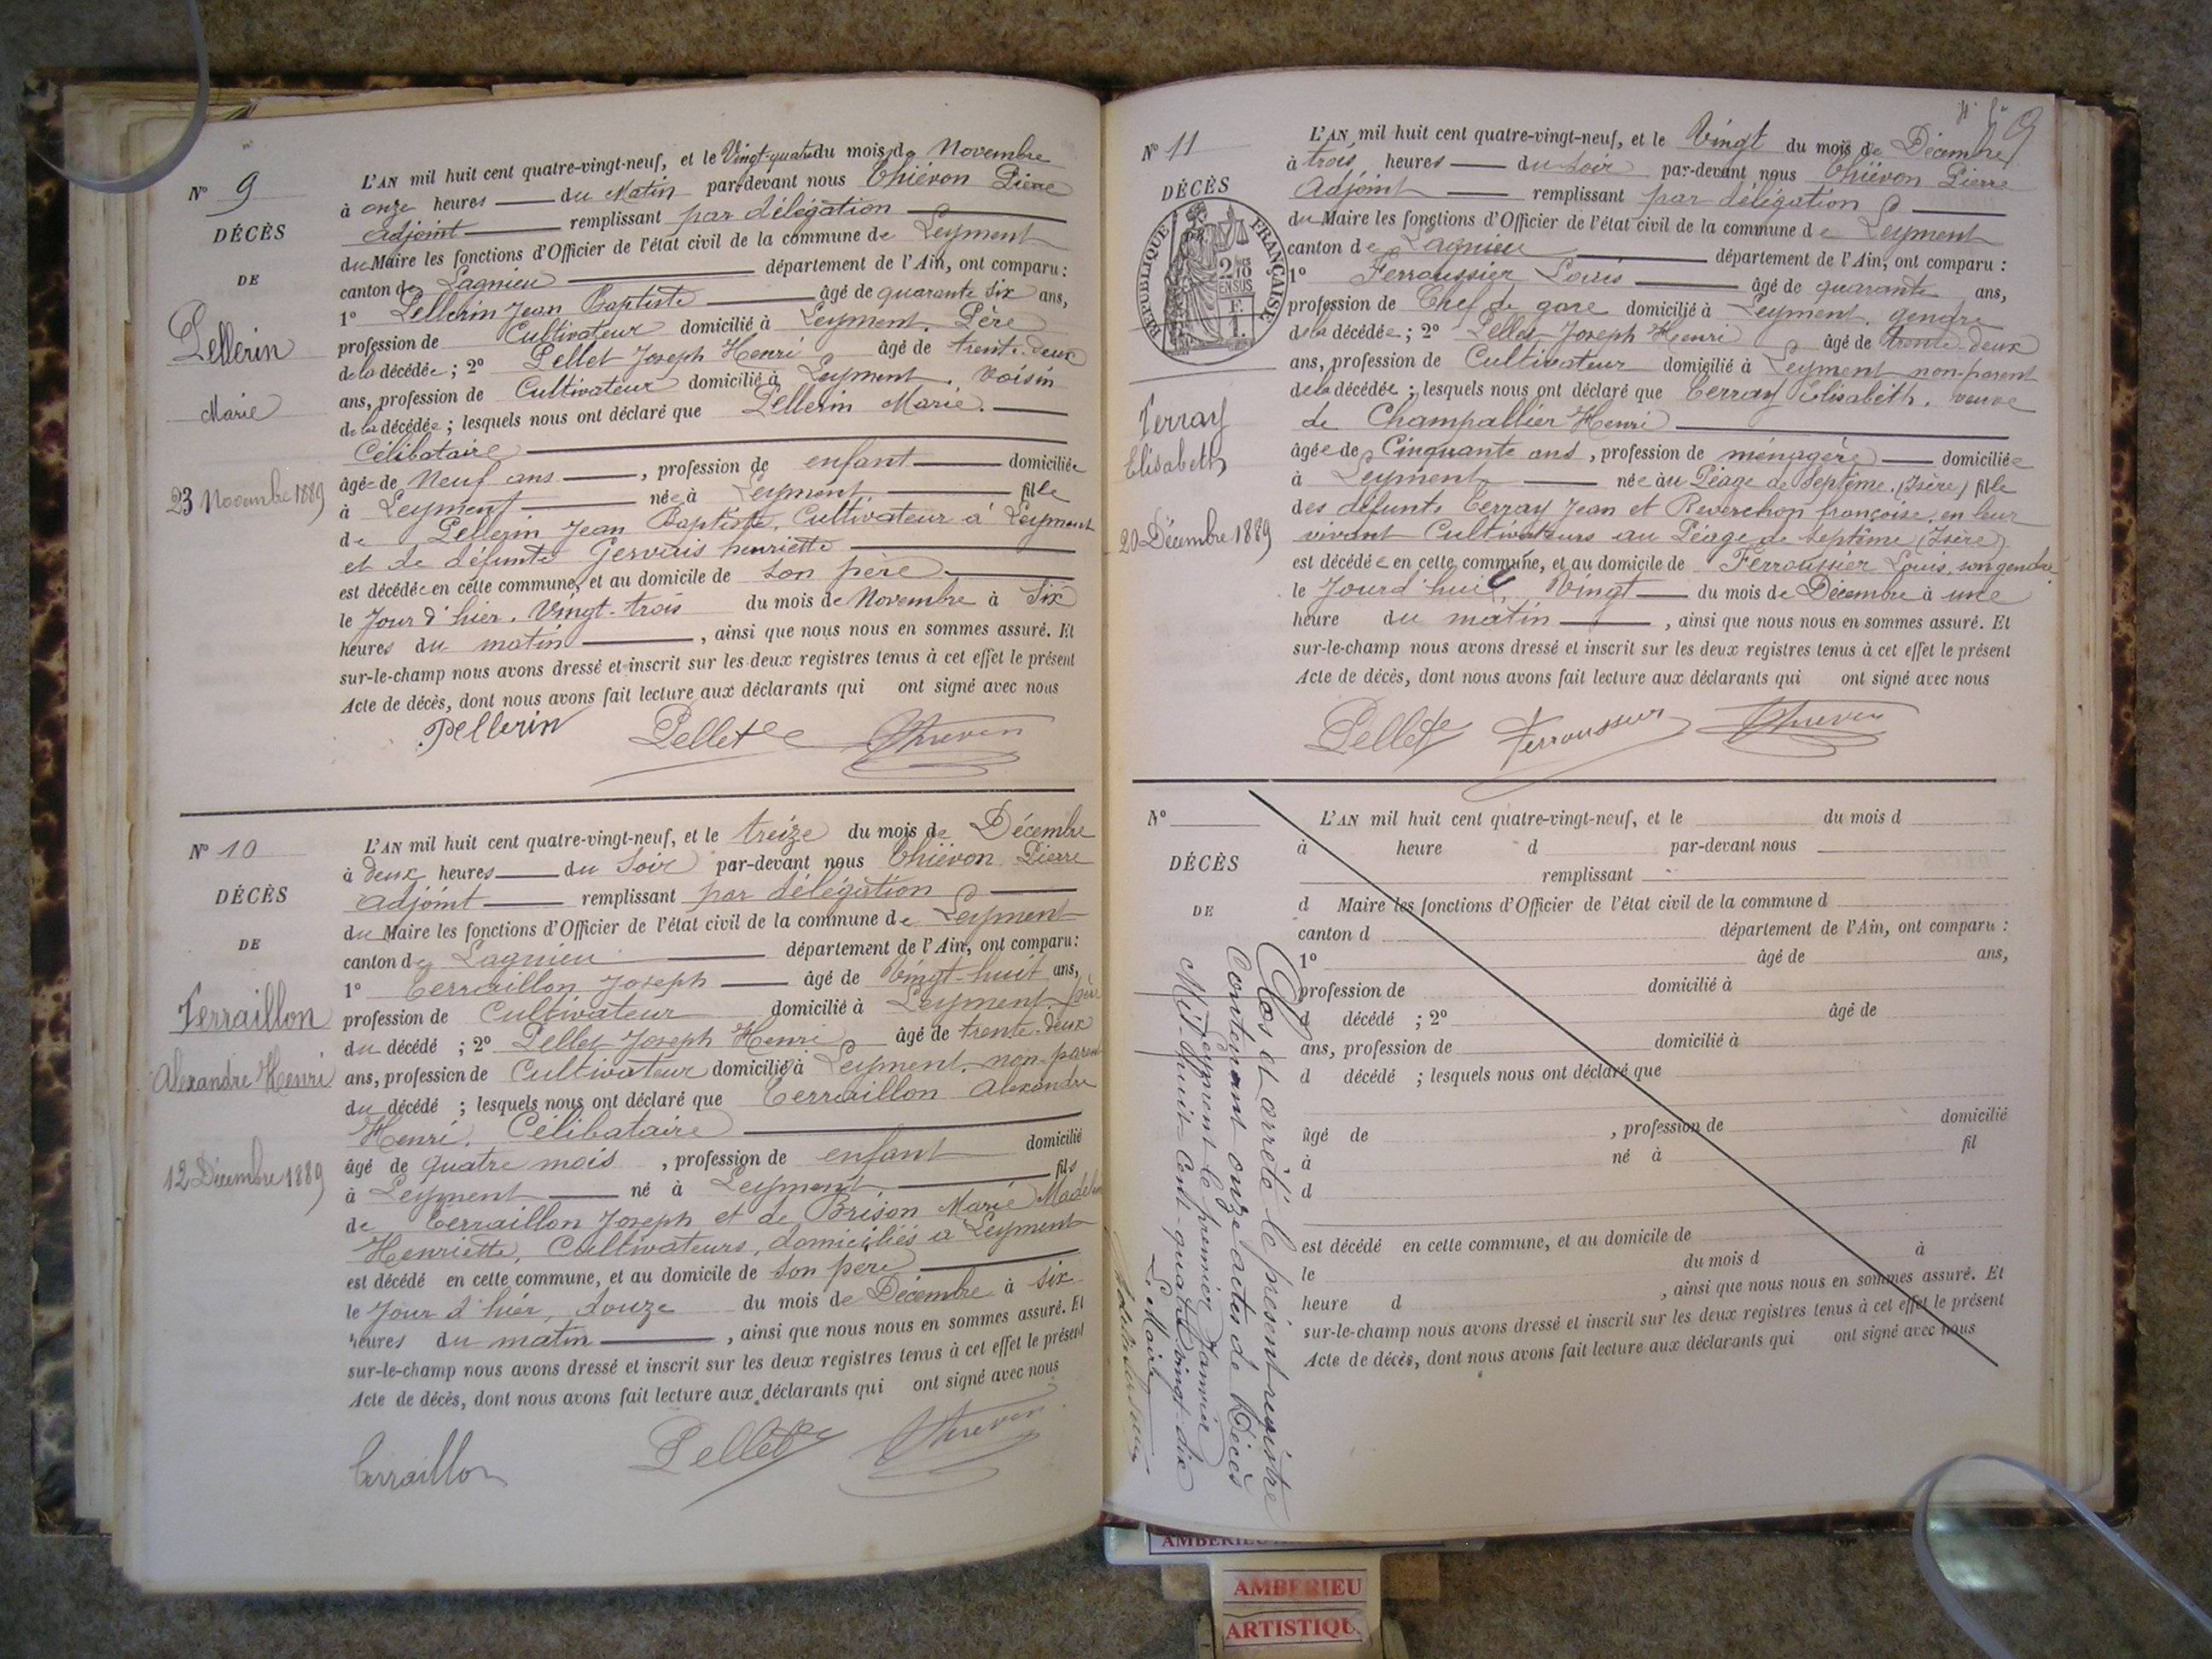 N° 9
DÉCÈS
DE
Pellerin
Marie
23 Novembre 1889
L'AN mil huit cent quatre-vingt-neuf, et le Vingt-quatre du mois de Novembre
à onze heures du Matin par-devant nous Thiévon Pierre
Adjoint remplissant par délégation
du Maire les fonctions d'Officier de l'état civil de la commune de Leyment
canton de Lagnieu département de l'Ain, ont comparu :
1° Pellerin Jean Baptiste âgé de quarante six ans,
profession de Cultivateur domicilié à Leyment. Père
de la décédée ; 2° Pellet Joseph Henri âgé de trente-deux
ans, profession de Cultivateur domicilié à Leyment. Voisin
de la décédée ; lesquels nous ont déclaré que Pellerin Marie.
Célibataire
âgée de Neuf ans , profession de enfant domiciliée
à Leyment née à Leyment fille
de Pellerin Jean Baptiste, Cultivateur à Leyment
et de défunte Gervais henriette
est décédée en cette commune, et au domicile de son père
le Jour d'hier. Vingt-trois du mois de Novembre à Six
heures du matin , ainsi que nous nous en sommes assuré. Et
sur-le-champ nous avons dressé et inscrit sur les deux registres tenus à cet effet le présent
Acte de décès, dont nous avons fait lecture aux déclarants qui ont signé avec nous
Pellerin Pellet Thievon
N° 10
DÉCÈS
DE
Terraillon
Alexandre Henri
12 Décembre 1889
L'AN mil huit cent quatre-vingt-neuf, et le treize du mois de Décembre
à deux heures du Soir par-devant nous Thiévon Pierre
adjoint remplissant par délégation
du Maire les fonctions d'Officier de l'état civil de la commune de Leyment
canton de Lagnieu département de l'Ain, ont comparu :
1° Terraillon Joseph âgé de Vingt-huit ans,
profession de Cultivateur domicilié à Leyment. père
du décédé ; 2° Pellet Joseph Henri âgé de trente-deux
ans, profession de Cultivateur domicilié à Leyment, non-parent
du décédé ; lesquels nous ont déclaré que Terraillon Alexandre
Henri, Célibataire
âgé de quatre mois , profession de enfant domicilié
à Leyment né à Leyment fils
de Terraillon Joseph et de Brison Marie
Henriette, Cultivateurs, domiciliés à Leyment
est décédé en cette commune, et au domicile de Son père
le Jour d'hier, douze du mois de Décembre à six
heures du matin , ainsi que nous nous en sommes assuré. Et
sur-le-champ nous avons dressé et inscrit sur les deux registres tenus à cet effet le présent
Acte de décès, dont nous avons fait lecture aux déclarants qui ont signé avec nous
Terraillon Pellet Thievon
9
N° 11
DÉCÈS
RÉPUBLIQUE FRANÇAISE
Terray
Elisabeth
20 Décembre 1889
L'AN mil huit cent quatre-vingt-neuf, et le Vingt du mois de Décembre
à trois heures du soir par-devant nous Thiévon Pierre
Adjoint remplissant par délégation
du Maire les fonctions d'Officier de l'état civil de la commune de Leyment
canton de Lagnieu département de l'Ain, ont comparu :
1° Ferroussier Louis âgé de quarante ans,
profession de Chef de gare domicilié à Leyment. gendre
de la décédée ; 2° Pellet Joseph Henri âgé de trente-deux
ans, profession de Cultivateur domicilié à Leyment non-parent
de la décédée ; lesquels nous ont déclaré que Terray Elisabeth. veuve
de Champallier Henri
âgée de Cinquante ans , profession de ménagère domiciliée
à Leyment née au Péage de Septème (Isère) fille
des défunts Terray Jean et Reverchon françoise, en leur
vivant Cultivateurs au Péage de Septème (Isère)
est décédée en cette commune, et au domicile de Ferroussier Louis, son gendre
le Jourd'hui, Vingt du mois de Décembre à une
heure du matin , ainsi que nous nous en sommes assuré. Et
sur-le-champ nous avons dressé et inscrit sur les deux registres tenus à cet effet le présent
Acte de décès, dont nous avons fait lecture aux déclarants qui ont signé avec nous
Pellet Ferroussier Thievon
N°
DÉCÈS
DE
L'AN mil huit cent quatre-vingt-neuf, et le du mois d
à heure d par-devant nous
remplissant
d Maire les fonctions d'Officier de l'état civil de la commune d
canton d département de l'Ain, ont comparu :
1° âgé de ans,
profession de domicilié à
d décédé ; 2° âgé de
ans, profession de domicilié à
d décédé ; lesquels nous ont déclaré que
âgé de , profession de domicilié
à né à fil
d
est décédé en cette commune, et au domicile de
le du mois d à
heure d , ainsi que nous nous en sommes assuré. Et
sur-le-champ nous avons dressé et inscrit sur les deux registres tenus à cet effet le présent
Acte de décès, dont nous avons fait lecture aux déclarants qui ont signé avec nous
Clos et arrêté le présent registre
Contenant onze actes de Décès
à Leyment le premier Janvier
Mil-huit-Cent-quatre-vingt-dix
Le Maire
AMBERIEU
AMBERIEU
ARTISTIQU